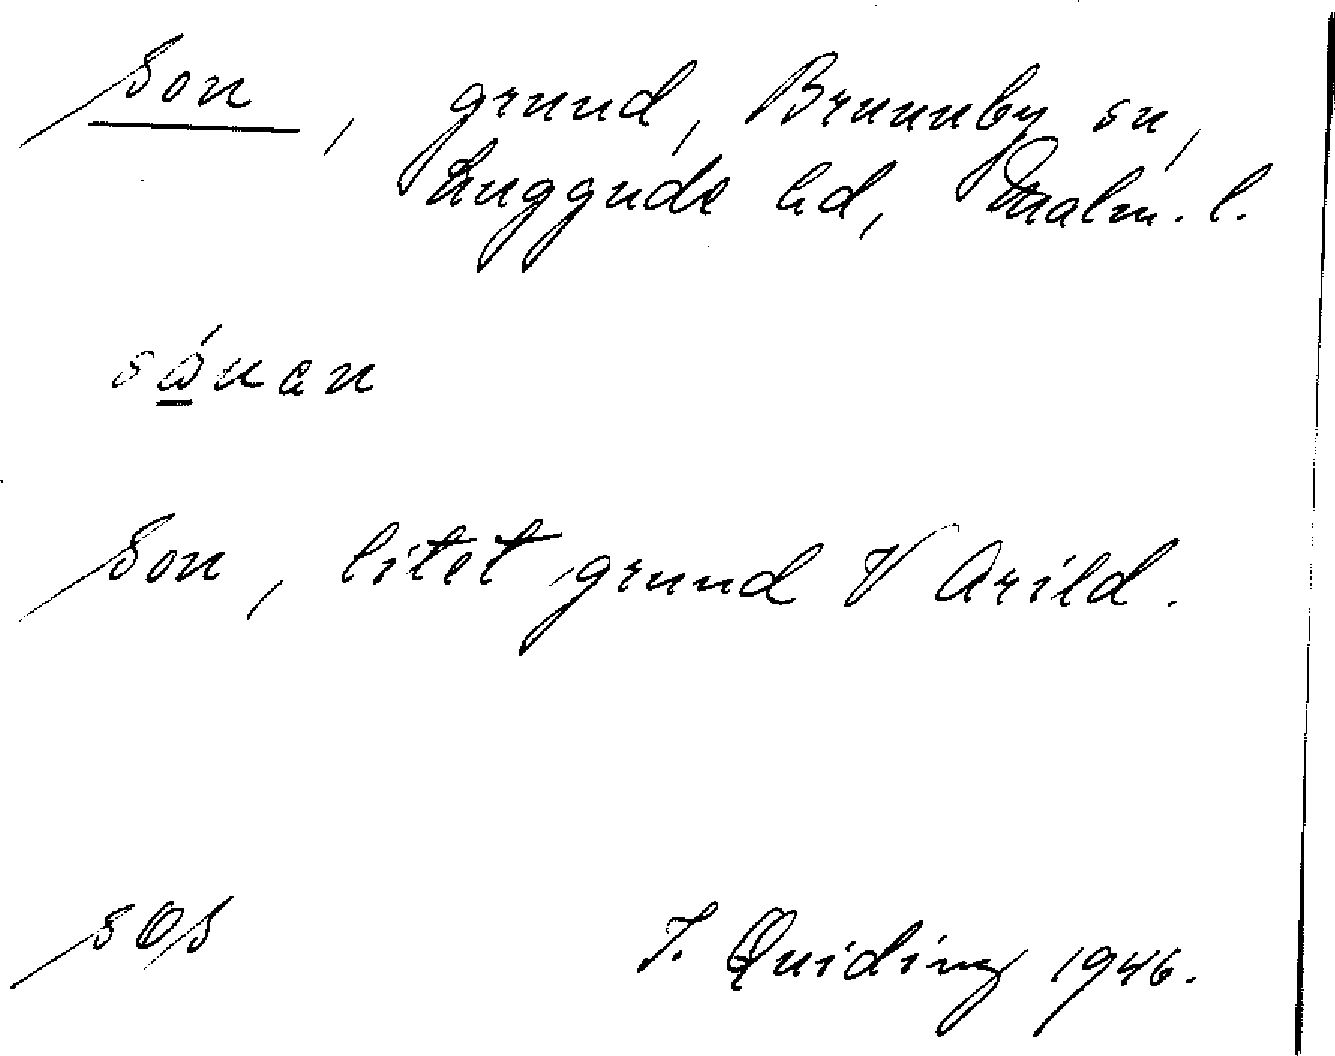 Son, grund, Brunnby sn,
Luggude hd, Malm. l.
sånan
Son, litet grund V Arild.
SOS I. Quiding 1946.